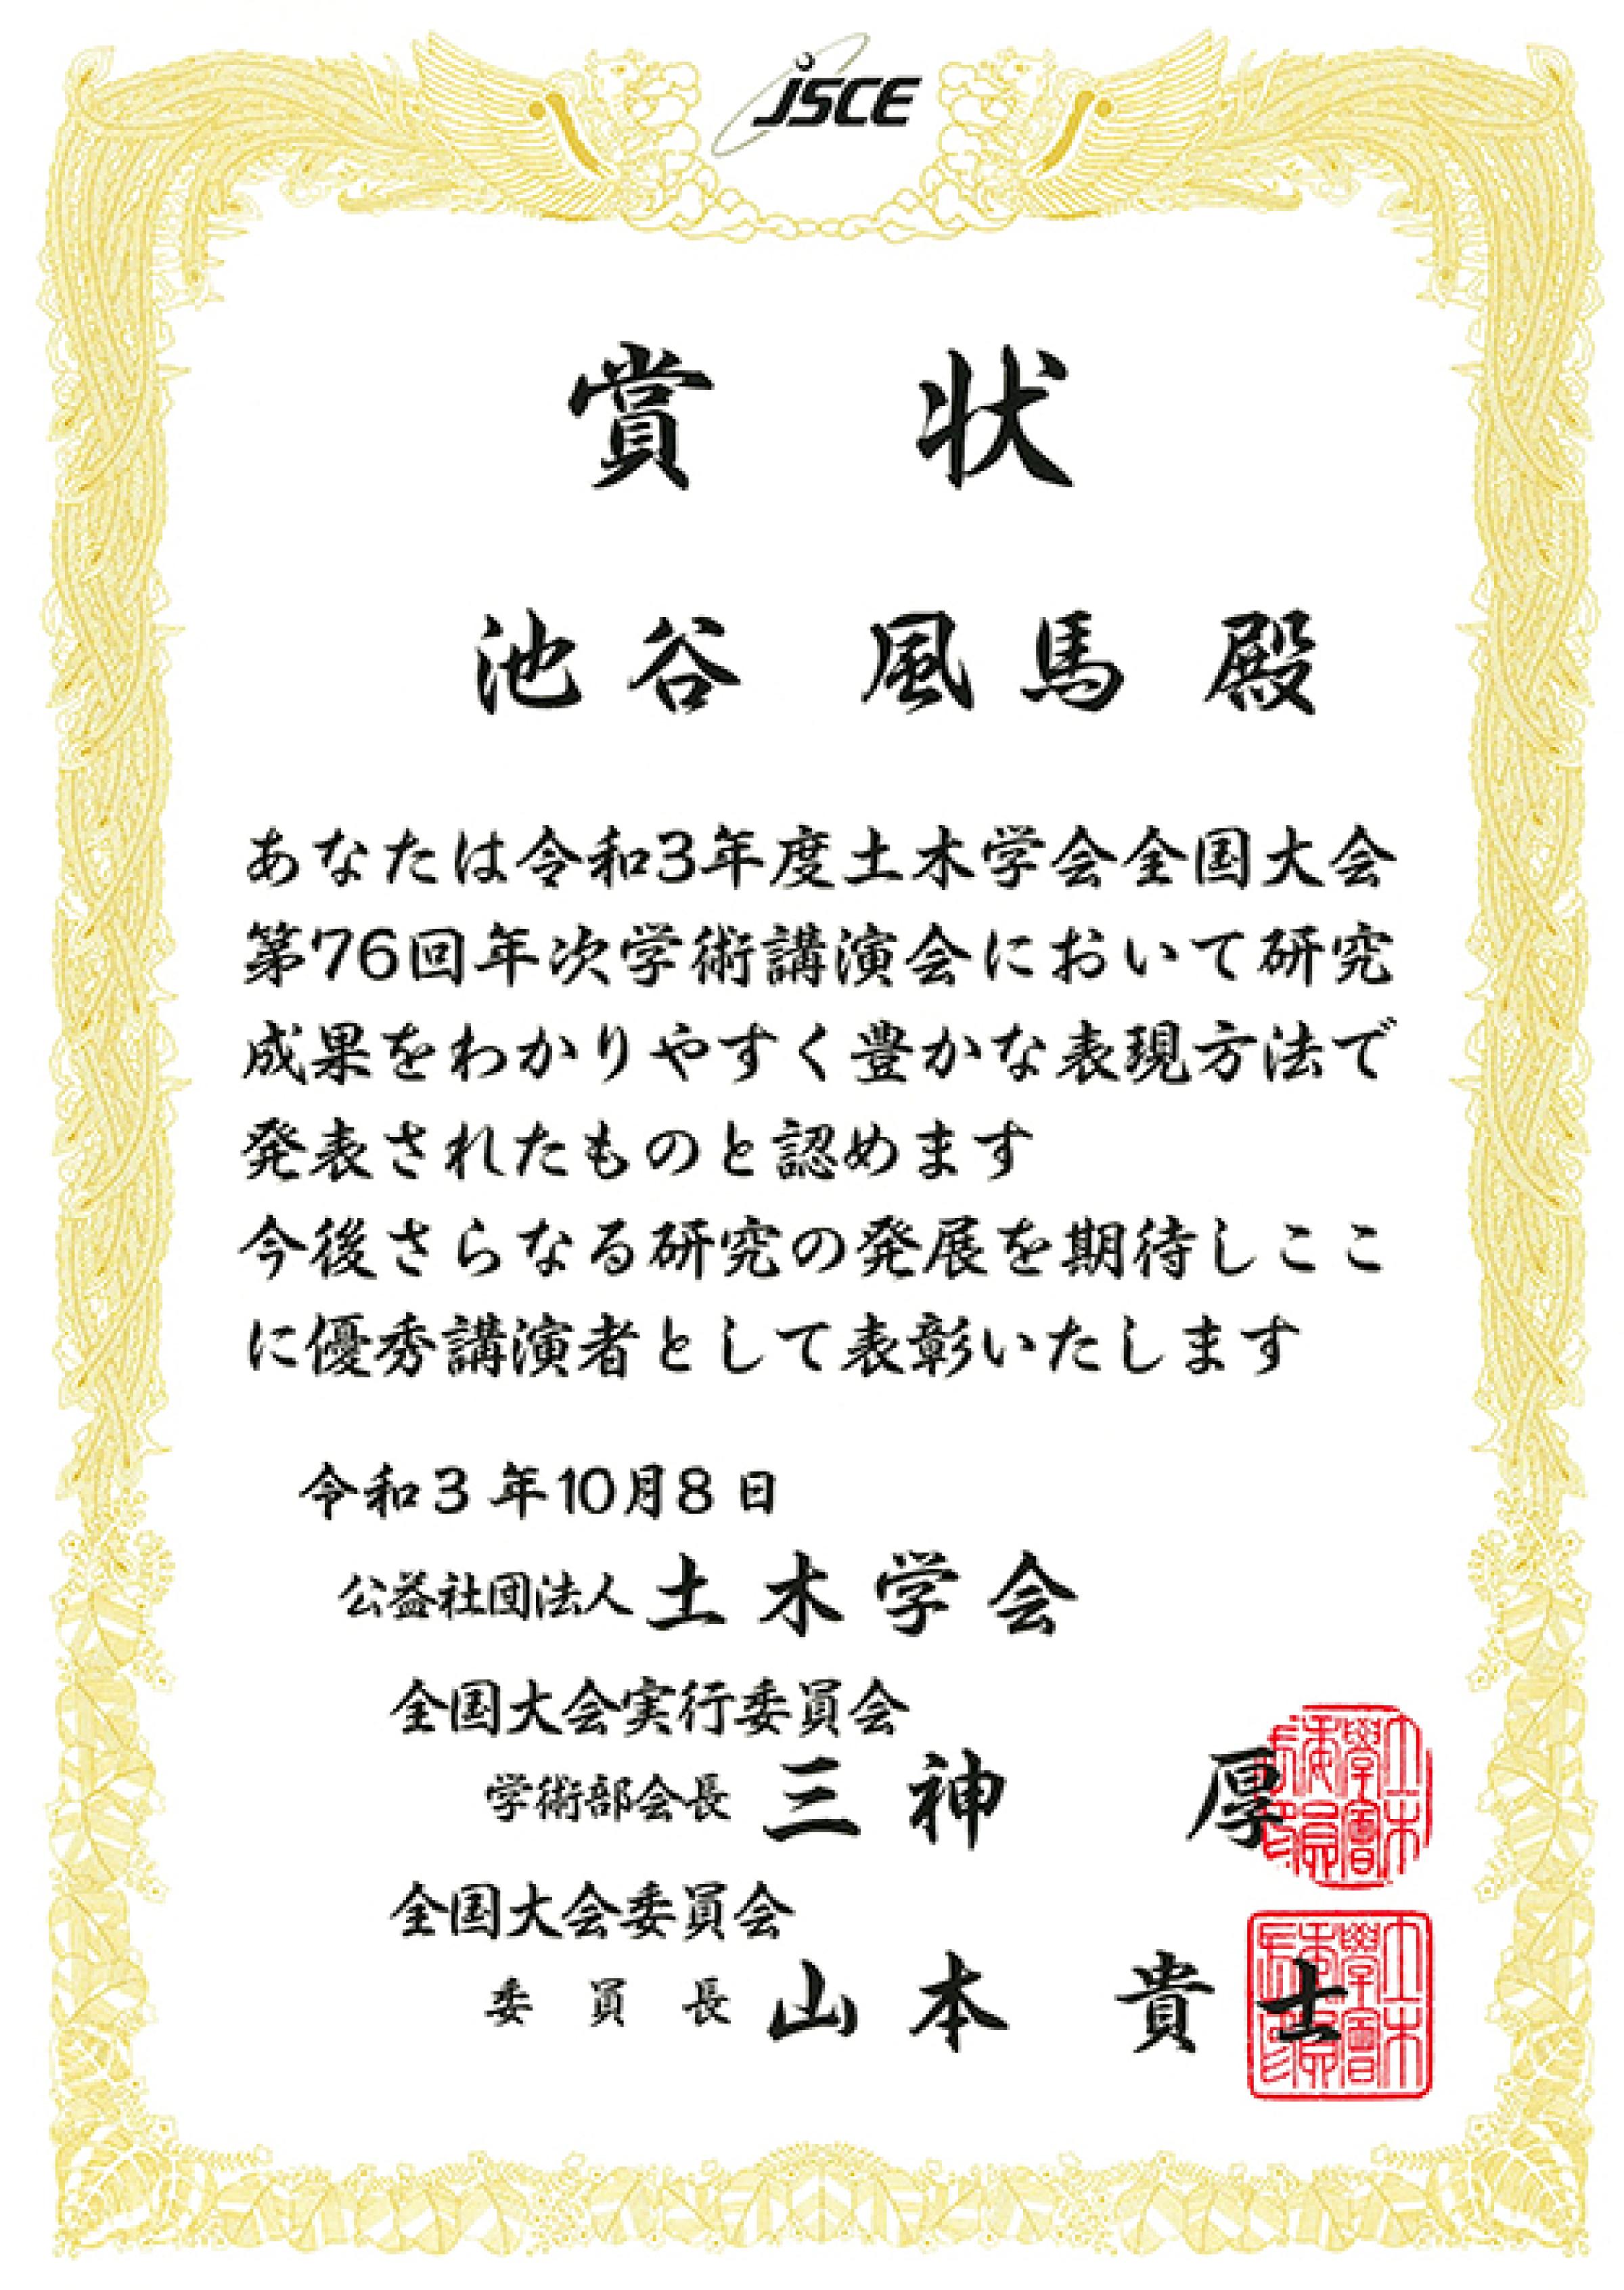 JSCE
賞 状
池谷 風馬 殿
あなたは令和3年度土木学会全国大会
第76回年次学術講演会において研究
成果をわかりやすく豊かな表現方法で
発表されたものと認めます
今後さらなる研究の発展を期待しここ
に優秀講演者として表彰いたします
令和3年10月8日
公益社団法人 土木学会
全国大会実行委員会
学術部会長 三神 厚
全国大会委員会
委員長 山本 貴士